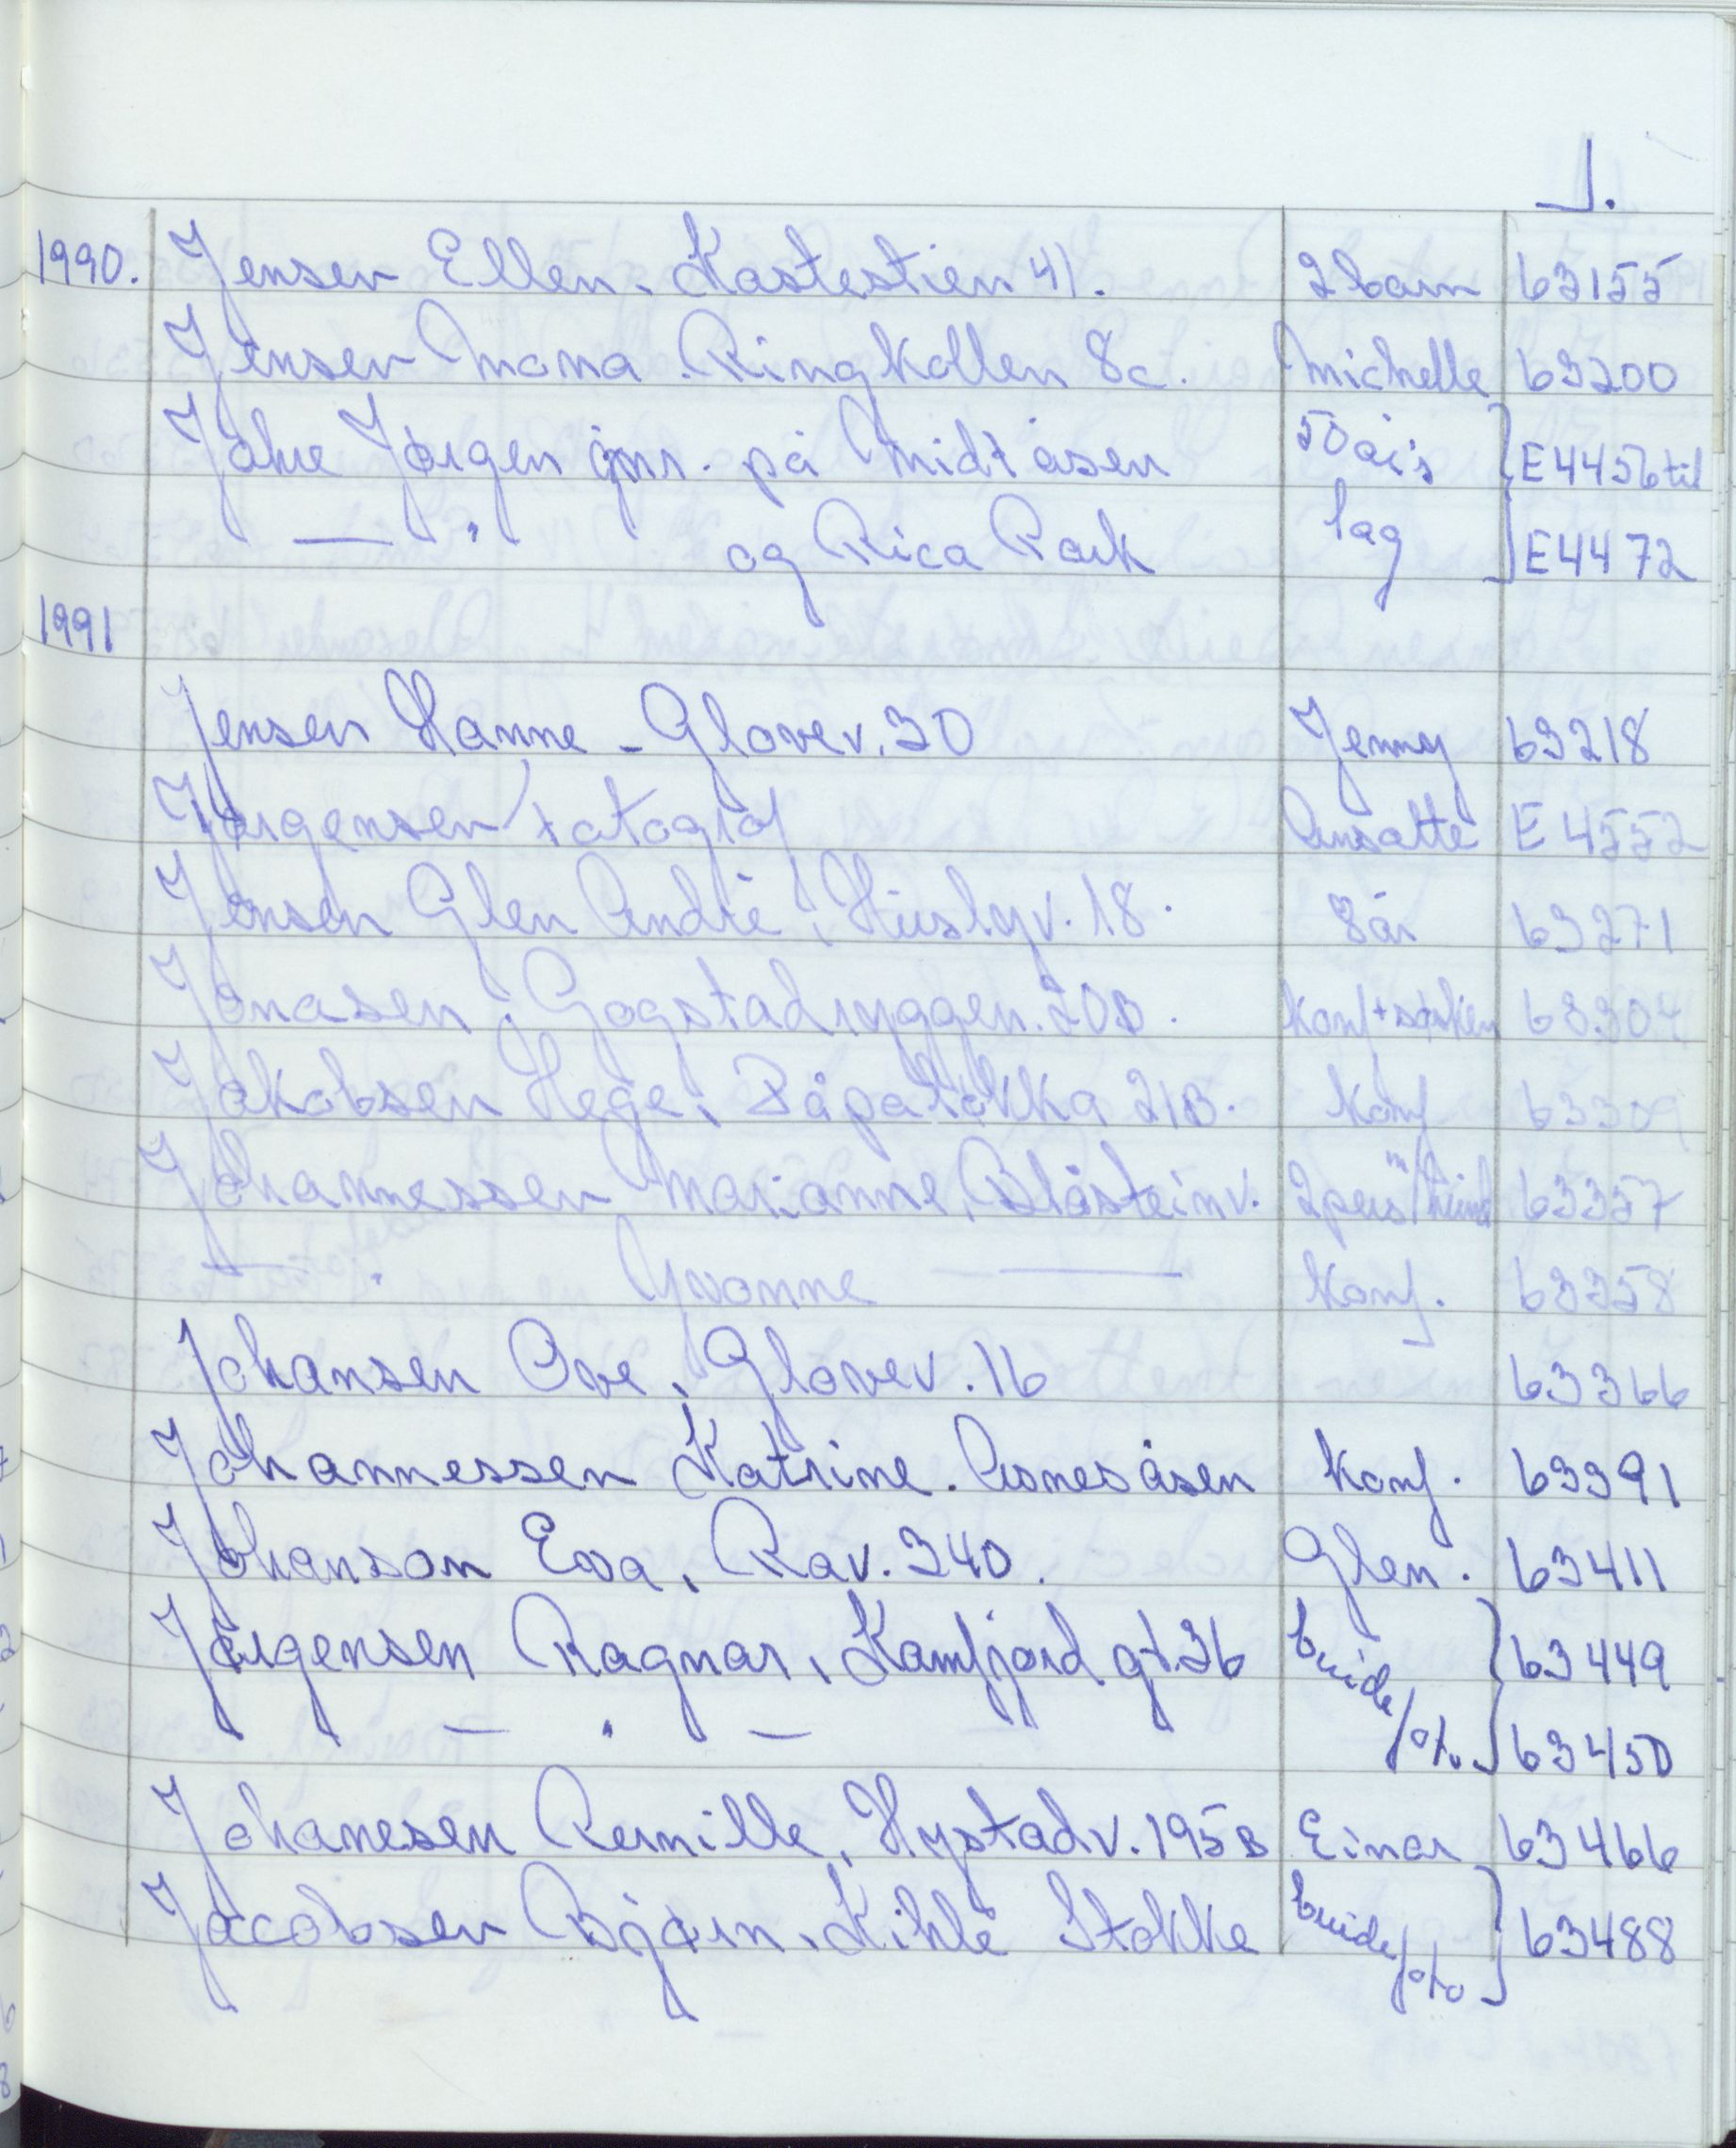 J.
1990. Jensen Ellen. Kastestien 41. 2 barn 63155
Jensen Mona. Ringkollen 8c. Michelle 63200
Jahre Jørgen jnr. på Midtåsen 50 års E4456 til
— " og Rica Park lag E4472
1991
Jensen Hanne - Glaver v. 30 Jenny 63218
Jørgensen fotograf Ansatte E4552
Jensen Glen André, Huslyv. 18. 8 år 63271
Jonasen, Gogstadryggen. 20D. Konf + søsken 63304
Jakobsen Hege, Råpaløkka 21B. Konf 63309
Johannessen Marianne, Blåsteinv. 2 pers m/hund 63357
— " Yvonne — Konf. 63358
Johansen Ove, Glaver v. 16 63366
Johannessen Katrine. Asnesåsen Konf. 63391
Johanson Eva, Rav. 340. Glen. 63411
Jørgensen Ragnar, Kamfjord gt. 36 brude 63449
— " — /% 63450
Johanesen Pernille, Hystadv. 195B Einar 63466
Jacobsen Bjørn, Kihle Stokke brude /% 63488